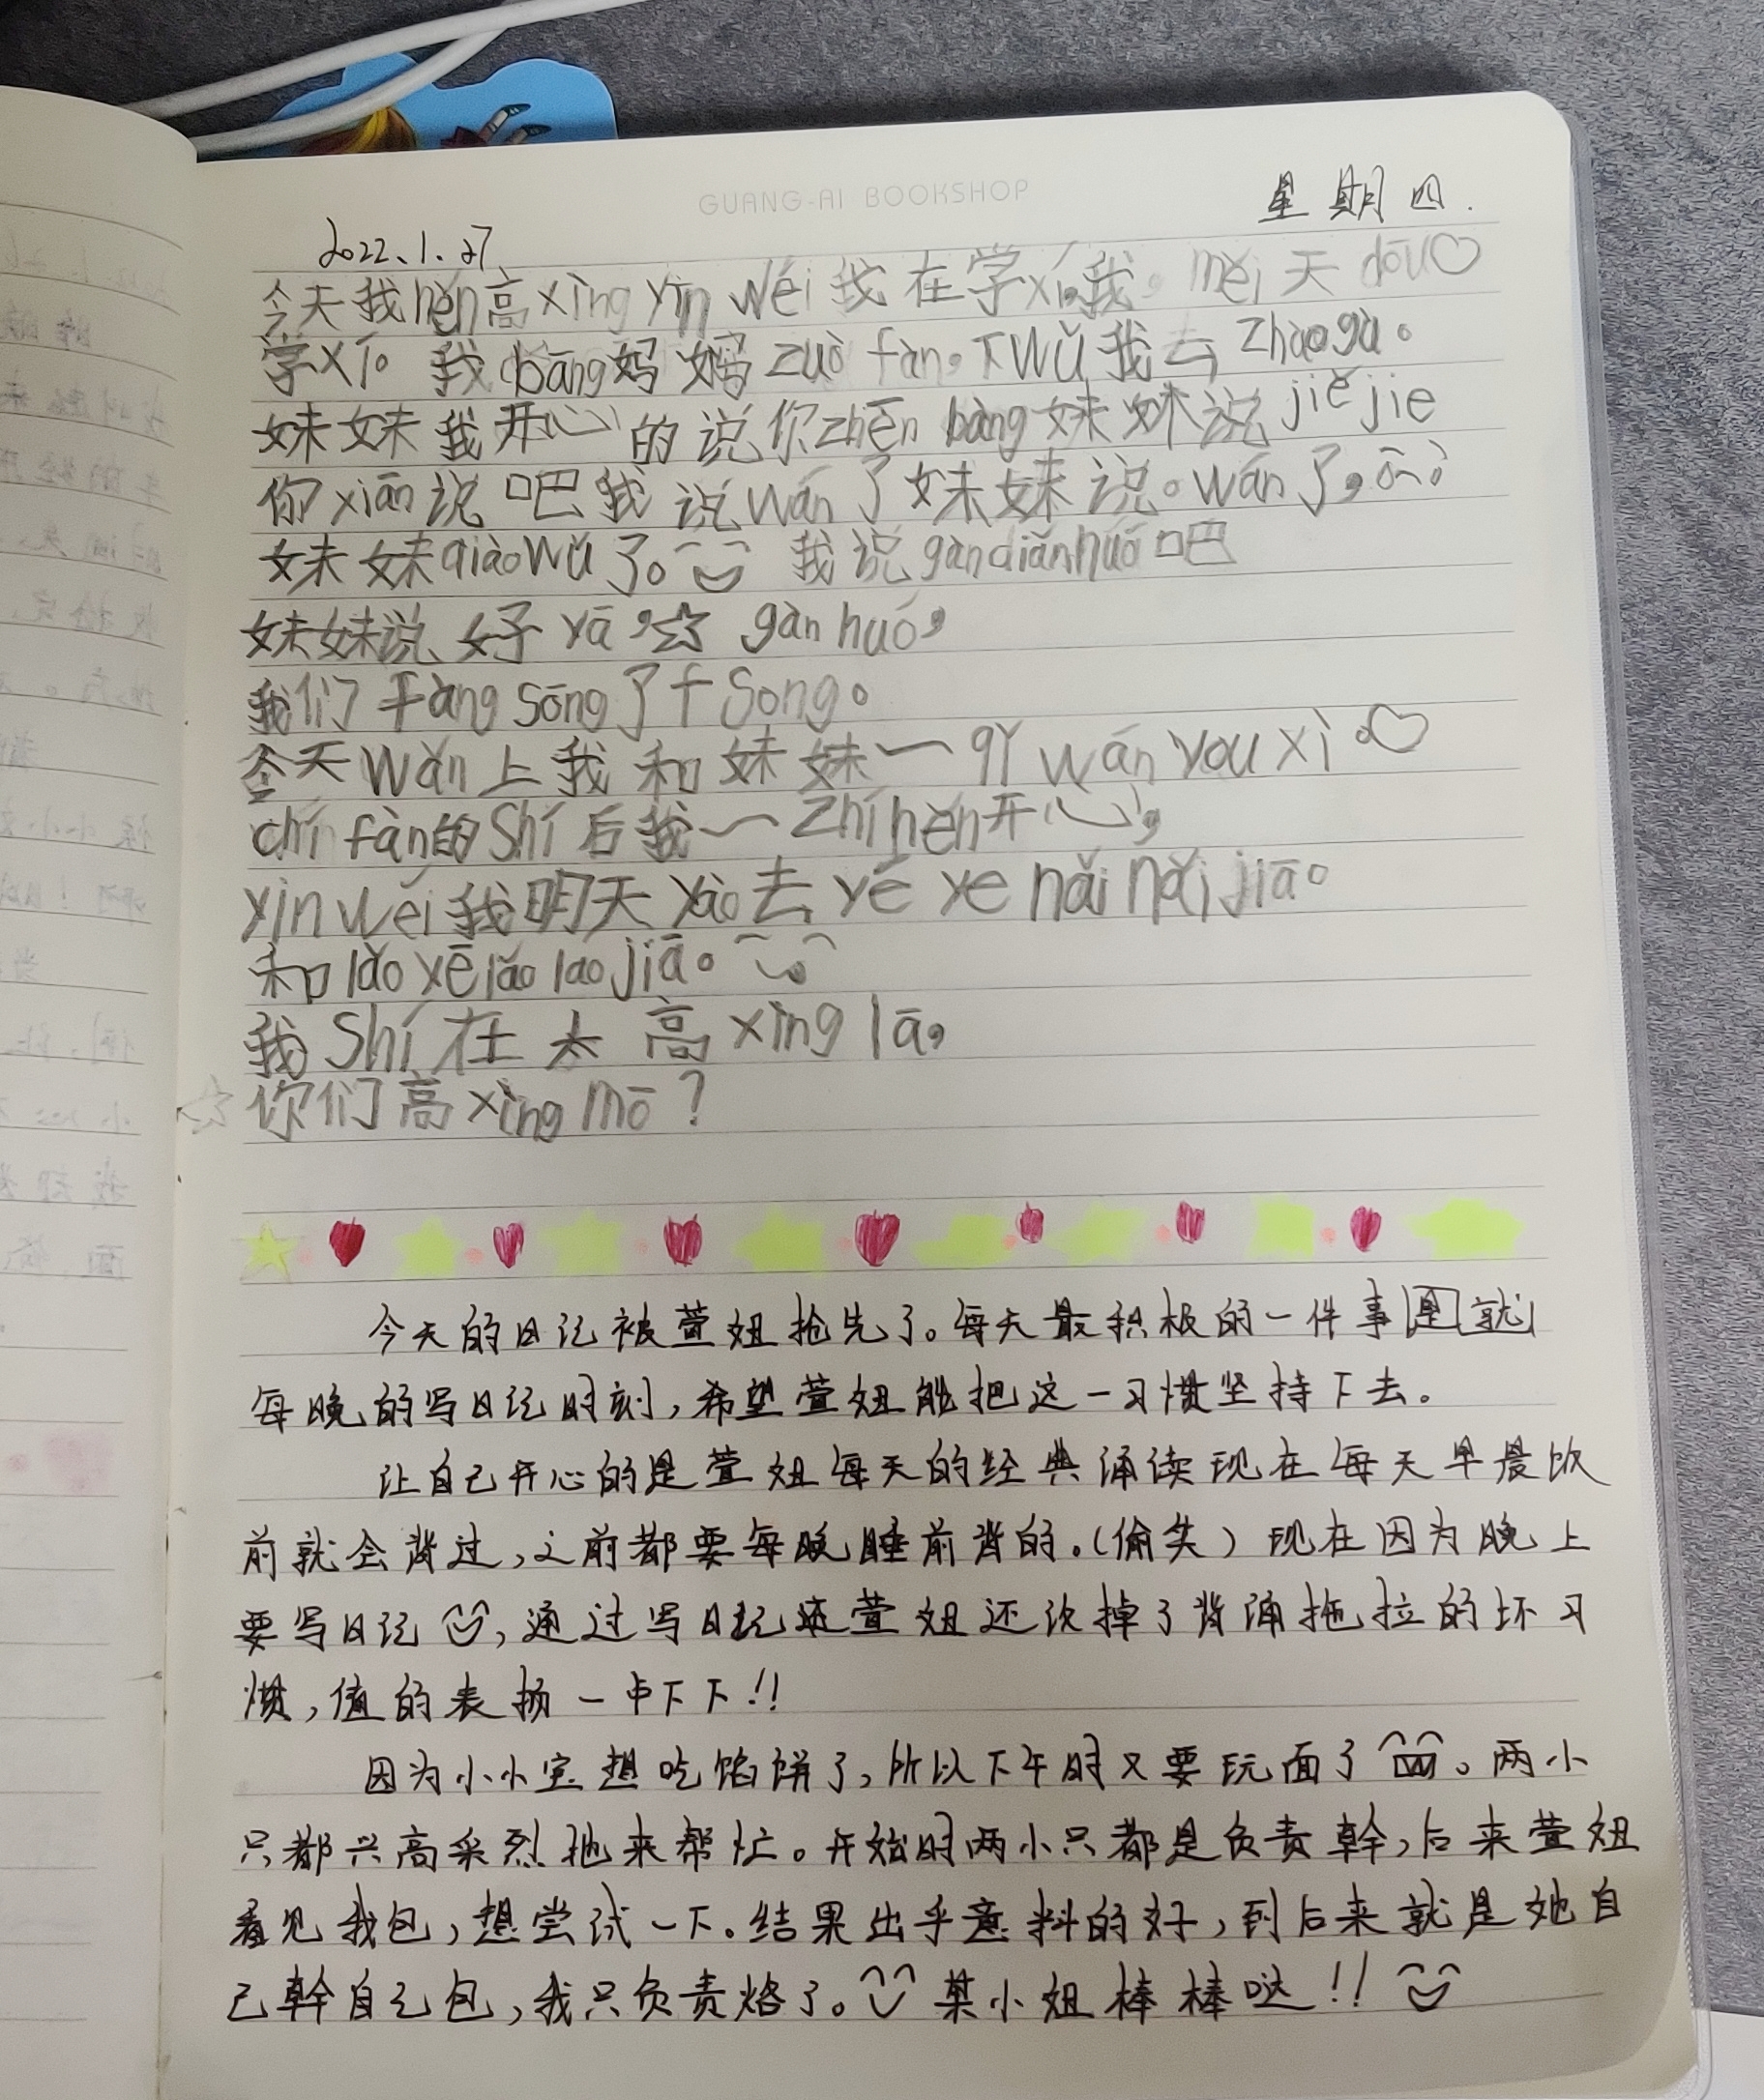 GUANG-AI BOOKSHOP
星期四.
2022.1.27
今天我hěn高xìng yīn wéi我在学xí。我。měi天dōu♡
学xí。我bāng妈妈zuò fàn。下wǔ我去zhào gù。
妹妹我开心的说你zhēn bàng妹妹说jiě jie
你xiān说吧我说wán了妹妹说。wán了,
妹妹qiào wǔ了。我说gàn diǎn huó吧
妹妹说好yā,☆ gàn huó,
我们fàng sōng了fàng Song。
今天wǎn上我和妹妹一qǐ wán you xì。♡
chī fàn的Shí后我一Zhí hěn开心,
yīn wéi我明天yào去yé ye nǎi nǎi jiā。
和lǎo yē lǎo lao jiā。
我Shí在太高xìng lā,
☆你们高xìng mō?
今天的日记被萱妞抢先了。每天最积极的一件事是就
每晚的写日记时刻,希望萱妞能把这一习惯坚持下去。
让自己开心的是萱妞每天的经典诵读现在每天早晨饭
前就会背过,之前都要每晚睡前背的。(偷笑)现在因为晚上
要写日记,通过写日记萱妞还改掉了背诵拖拉的坏习
惯,值的表扬一下下!!
因为小小宝想吃馅饼了,所以下午时又要玩面了。两小
只都兴高采烈地来帮忙。开始时两小只都是负责擀,后来萱妞
看见我包,想尝试一下。结果出乎意料的好,到后来就是她自
己擀自己包,我只负责烙了。某小妞棒棒哒!!